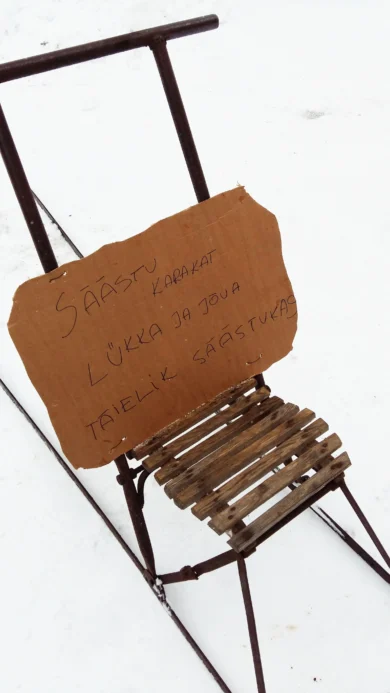 SÄÄSTU
KARAKAT
LÜKKA JA JOUA
TÄIELIK SÄÄSTUKAS